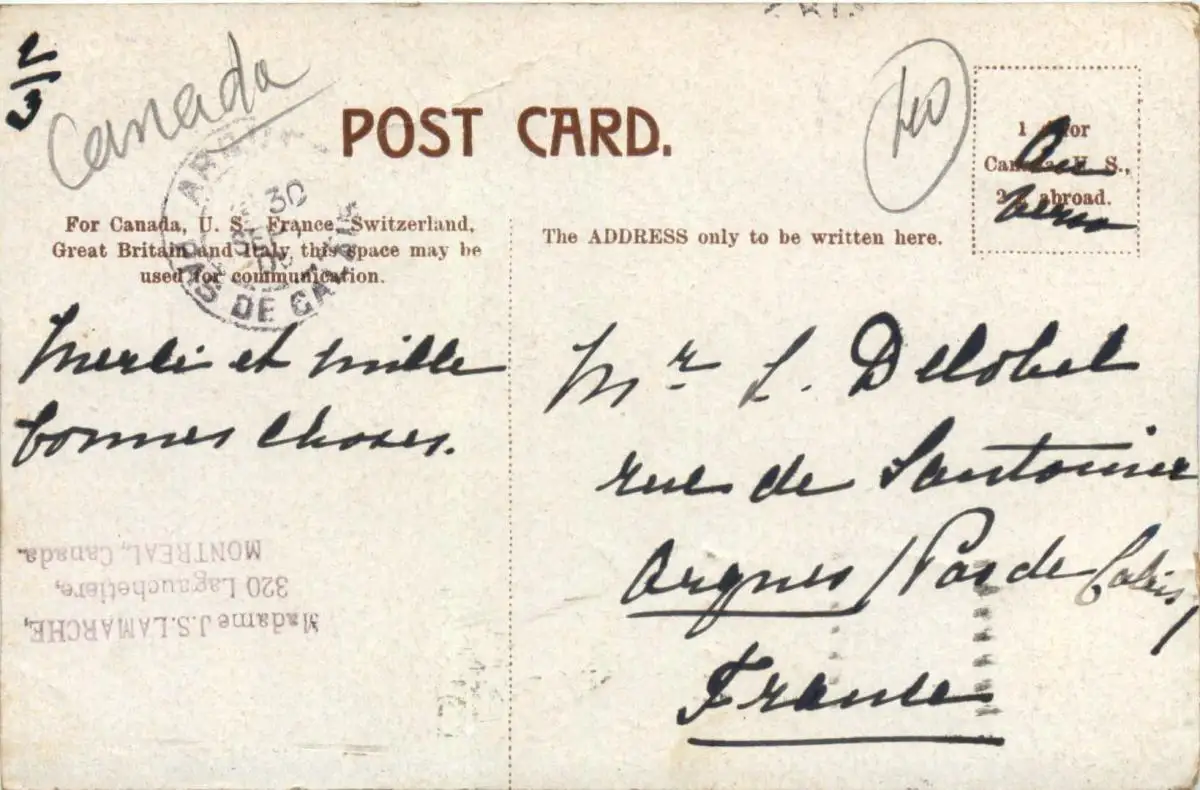 2/3
Canada
POST CARD.
40
1 for
Canada U. S.,
2 abroad.
Au
verso
30
PAS DE CALAIS
For Canada, U. S., France, Switzerland,
Great Britain and Italy this space may be
used for communication.
The ADDRESS only to be written here.
Merci et mille
bonnes choses.
Mr L. Delobel
rue de
Arques / Pas de Calais
France
Madame J.S. LAMARCHE,
320 Lagauchetiere,
MONTREAL, Canada.